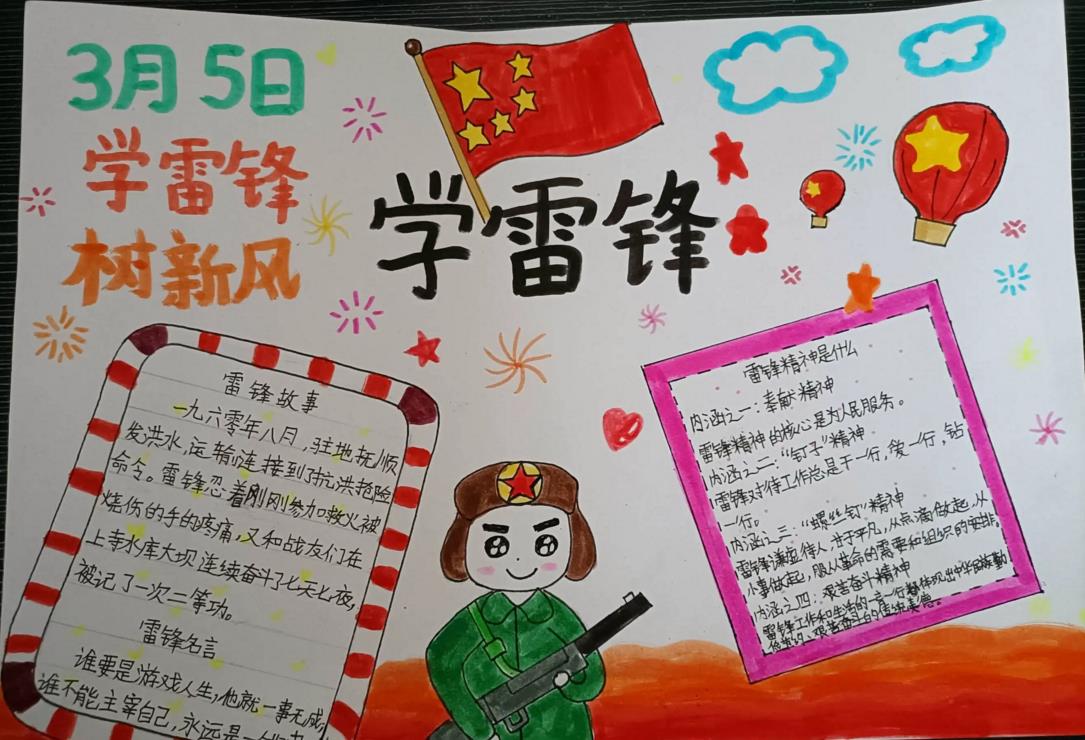 3月5日
学雷锋
树新风
学雷锋
雷锋故事
一九六零年八月，驻地抚顺
发洪水，运输连接到抗洪抢险
命令。雷锋忍着刚刚参加救火被
烧伤的手的疼痛，又和战友们在
上寺水库大坝连续奋斗了七天七夜，
被记了一次二等功。
雷锋名言
谁要是游戏人生，他就一事无成，
谁不能主宰自己，永远是一
雷锋精神是什么
内涵之一：奉献精神
雷锋精神的核心是为人民服务。
内涵之二：“钉子”精神
雷锋对待工作总是干一行，爱一行，钻
一行。
内涵之三：“螺丝钉”精神
雷锋谦虚待人，甘于平凡，从点滴做起，从
小事做起，服从革命的需要和组织的安排。
内涵之四：艰苦奋斗精神
雷锋工作和生活的一言一行都体现出中华民族勤